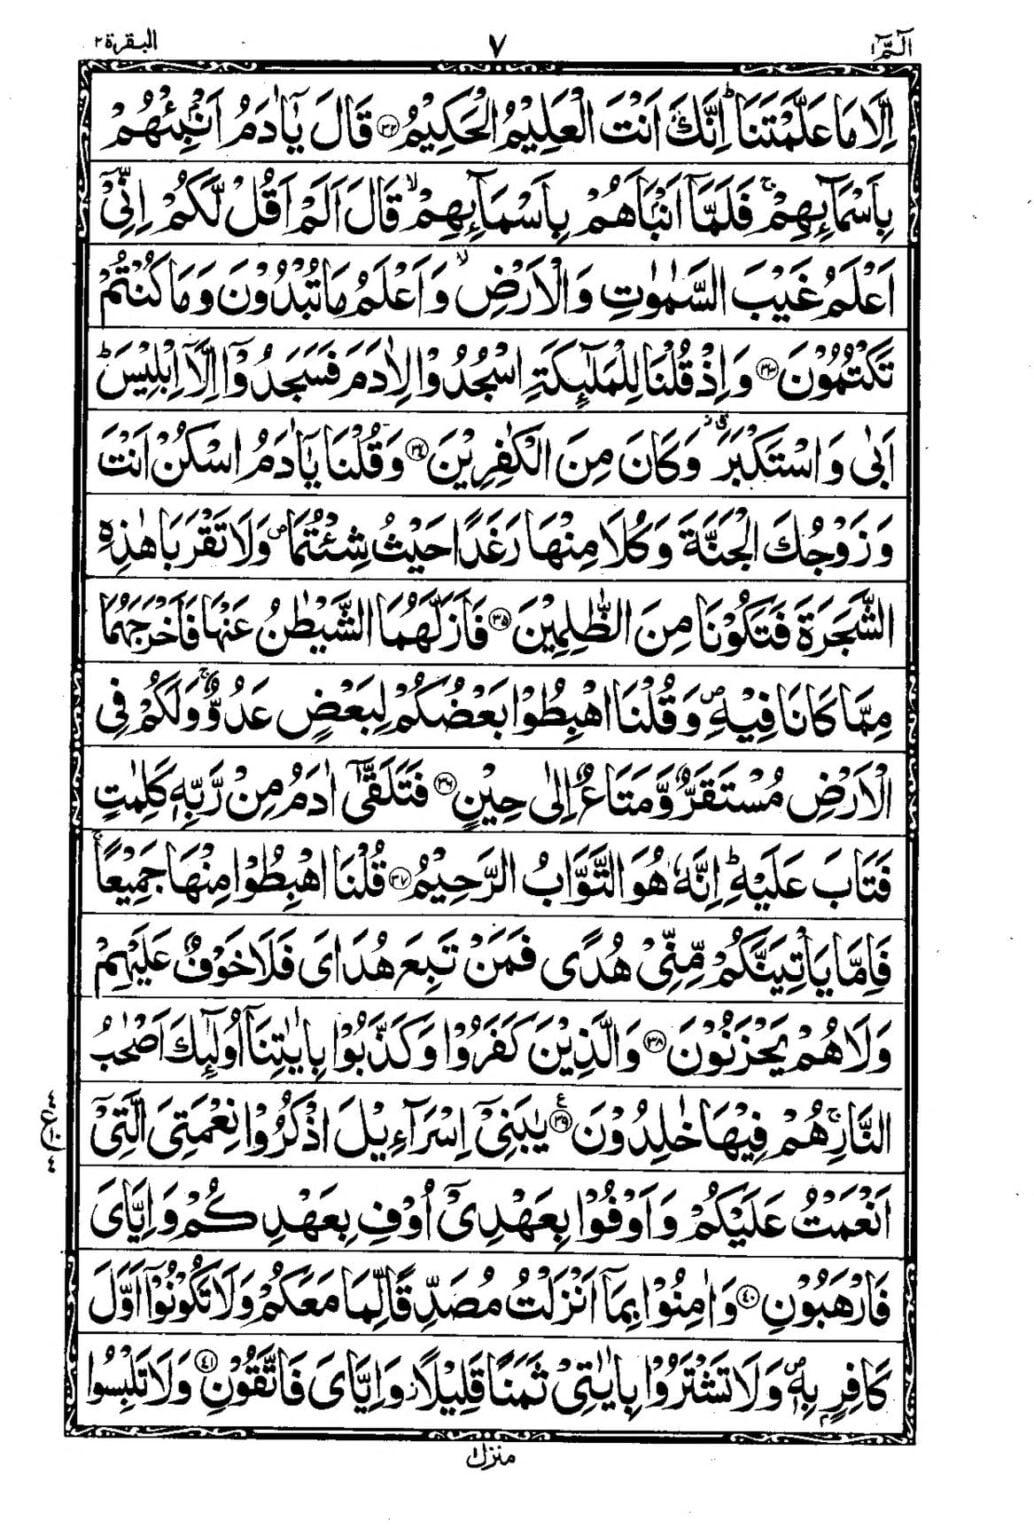 الٓمّٓ ١ ٧ البقرة ٢
اِلَّا مَا عَلَّمْتَنَا ؕ اِنَّكَ اَنْتَ الْعَلِيْمُ الْحَكِيْمُ ﴿۳۲﴾ قَالَ يٰۤاٰدَمُ اَنْۢبِئْهُمْ
بِاَسْمَآىِٕهِمْ ۚ فَلَمَّاۤ اَنْۢبَاَهُمْ بِاَسْمَآىِٕهِمْ ۙ قَالَ اَلَمْ اَقُلْ لَّكُمْ اِنِّيْۤ
اَعْلَمُ غَيْبَ السَّمٰوٰتِ وَالْاَرْضِ ۙ وَاَعْلَمُ مَا تُبْدُوْنَ وَمَا كُنْتُمْ
تَكْتُمُوْنَ ﴿۳۳﴾ وَاِذْ قُلْنَا لِلْمَلٰٓىِٕكَةِ اسْجُدُوْا لِاٰدَمَ فَسَجَدُوْۤا اِلَّاۤ اِبْلِيْسَ ؕ
اَبٰى وَاسْتَكْبَرَ ٘ۗ وَكَانَ مِنَ الْكٰفِرِيْنَ ﴿۳۴﴾ وَقُلْنَا يٰۤاٰدَمُ اسْكُنْ اَنْتَ
وَزَوْجُكَ الْجَنَّةَ وَكُلَا مِنْهَا رَغَدًا حَيْثُ شِئْتُمَا ۪ وَلَا تَقْرَبَا هٰذِهِ
الشَّجَرَةَ فَتَكُوْنَا مِنَ الظّٰلِمِيْنَ ﴿۳۵﴾ فَاَزَلَّهُمَا الشَّيْطٰنُ عَنْهَا فَاَخْرَجَهُمَا
مِمَّا كَانَا فِيْهِ ۪ وَقُلْنَا اهْبِطُوْا بَعْضُكُمْ لِبَعْضٍ عَدُوٌّ ۚ وَلَكُمْ فِي
الْاَرْضِ مُسْتَقَرٌّ وَّمَتَاعٌ اِلٰى حِيْنٍ ﴿۳۶﴾ فَتَلَقّٰۤى اٰدَمُ مِنْ رَّبِّهٖ كَلِمٰتٍ
فَتَابَ عَلَيْهِ ؕ اِنَّهٗ هُوَ التَّوَّابُ الرَّحِيْمُ ﴿۳۷﴾ قُلْنَا اهْبِطُوْا مِنْهَا جَمِيْعًا ۚ
فَاِمَّا يَاْتِيَنَّكُمْ مِّنِّيْ هُدًى فَمَنْ تَبِعَ هُدَايَ فَلَا خَوْفٌ عَلَيْهِمْ
وَلَا هُمْ يَحْزَنُوْنَ ﴿۳۸﴾ وَالَّذِيْنَ كَفَرُوْا وَكَذَّبُوْا بِاٰيٰتِنَاۤ اُولٰٓىِٕكَ اَصْحٰبُ
النَّارِ ۚ هُمْ فِيْهَا خٰلِدُوْنَ ﴿۳۹﴾ يٰبَنِيْۤ اِسْرَآءِيْلَ اذْكُرُوْا نِعْمَتِيَ الَّتِيْۤ
اَنْعَمْتُ عَلَيْكُمْ وَاَوْفُوْا بِعَهْدِيْۤ اُوْفِ بِعَهْدِكُمْ وَاِيَّايَ
فَارْهَبُوْنِ ﴿۴۰﴾ وَاٰمِنُوْا بِمَاۤ اَنْزَلْتُ مُصَدِّقًا لِّمَا مَعَكُمْ وَلَا تَكُوْنُوْۤا اَوَّلَ
كَافِرٍۭ بِهٖ ۪ وَلَا تَشْتَرُوْا بِاٰيٰتِيْ ثَمَنًا قَلِيْلًا ؗ وَاِيَّايَ فَاتَّقُوْنِ ﴿۴۱﴾ وَلَا تَلْبِسُوا
منزل ١